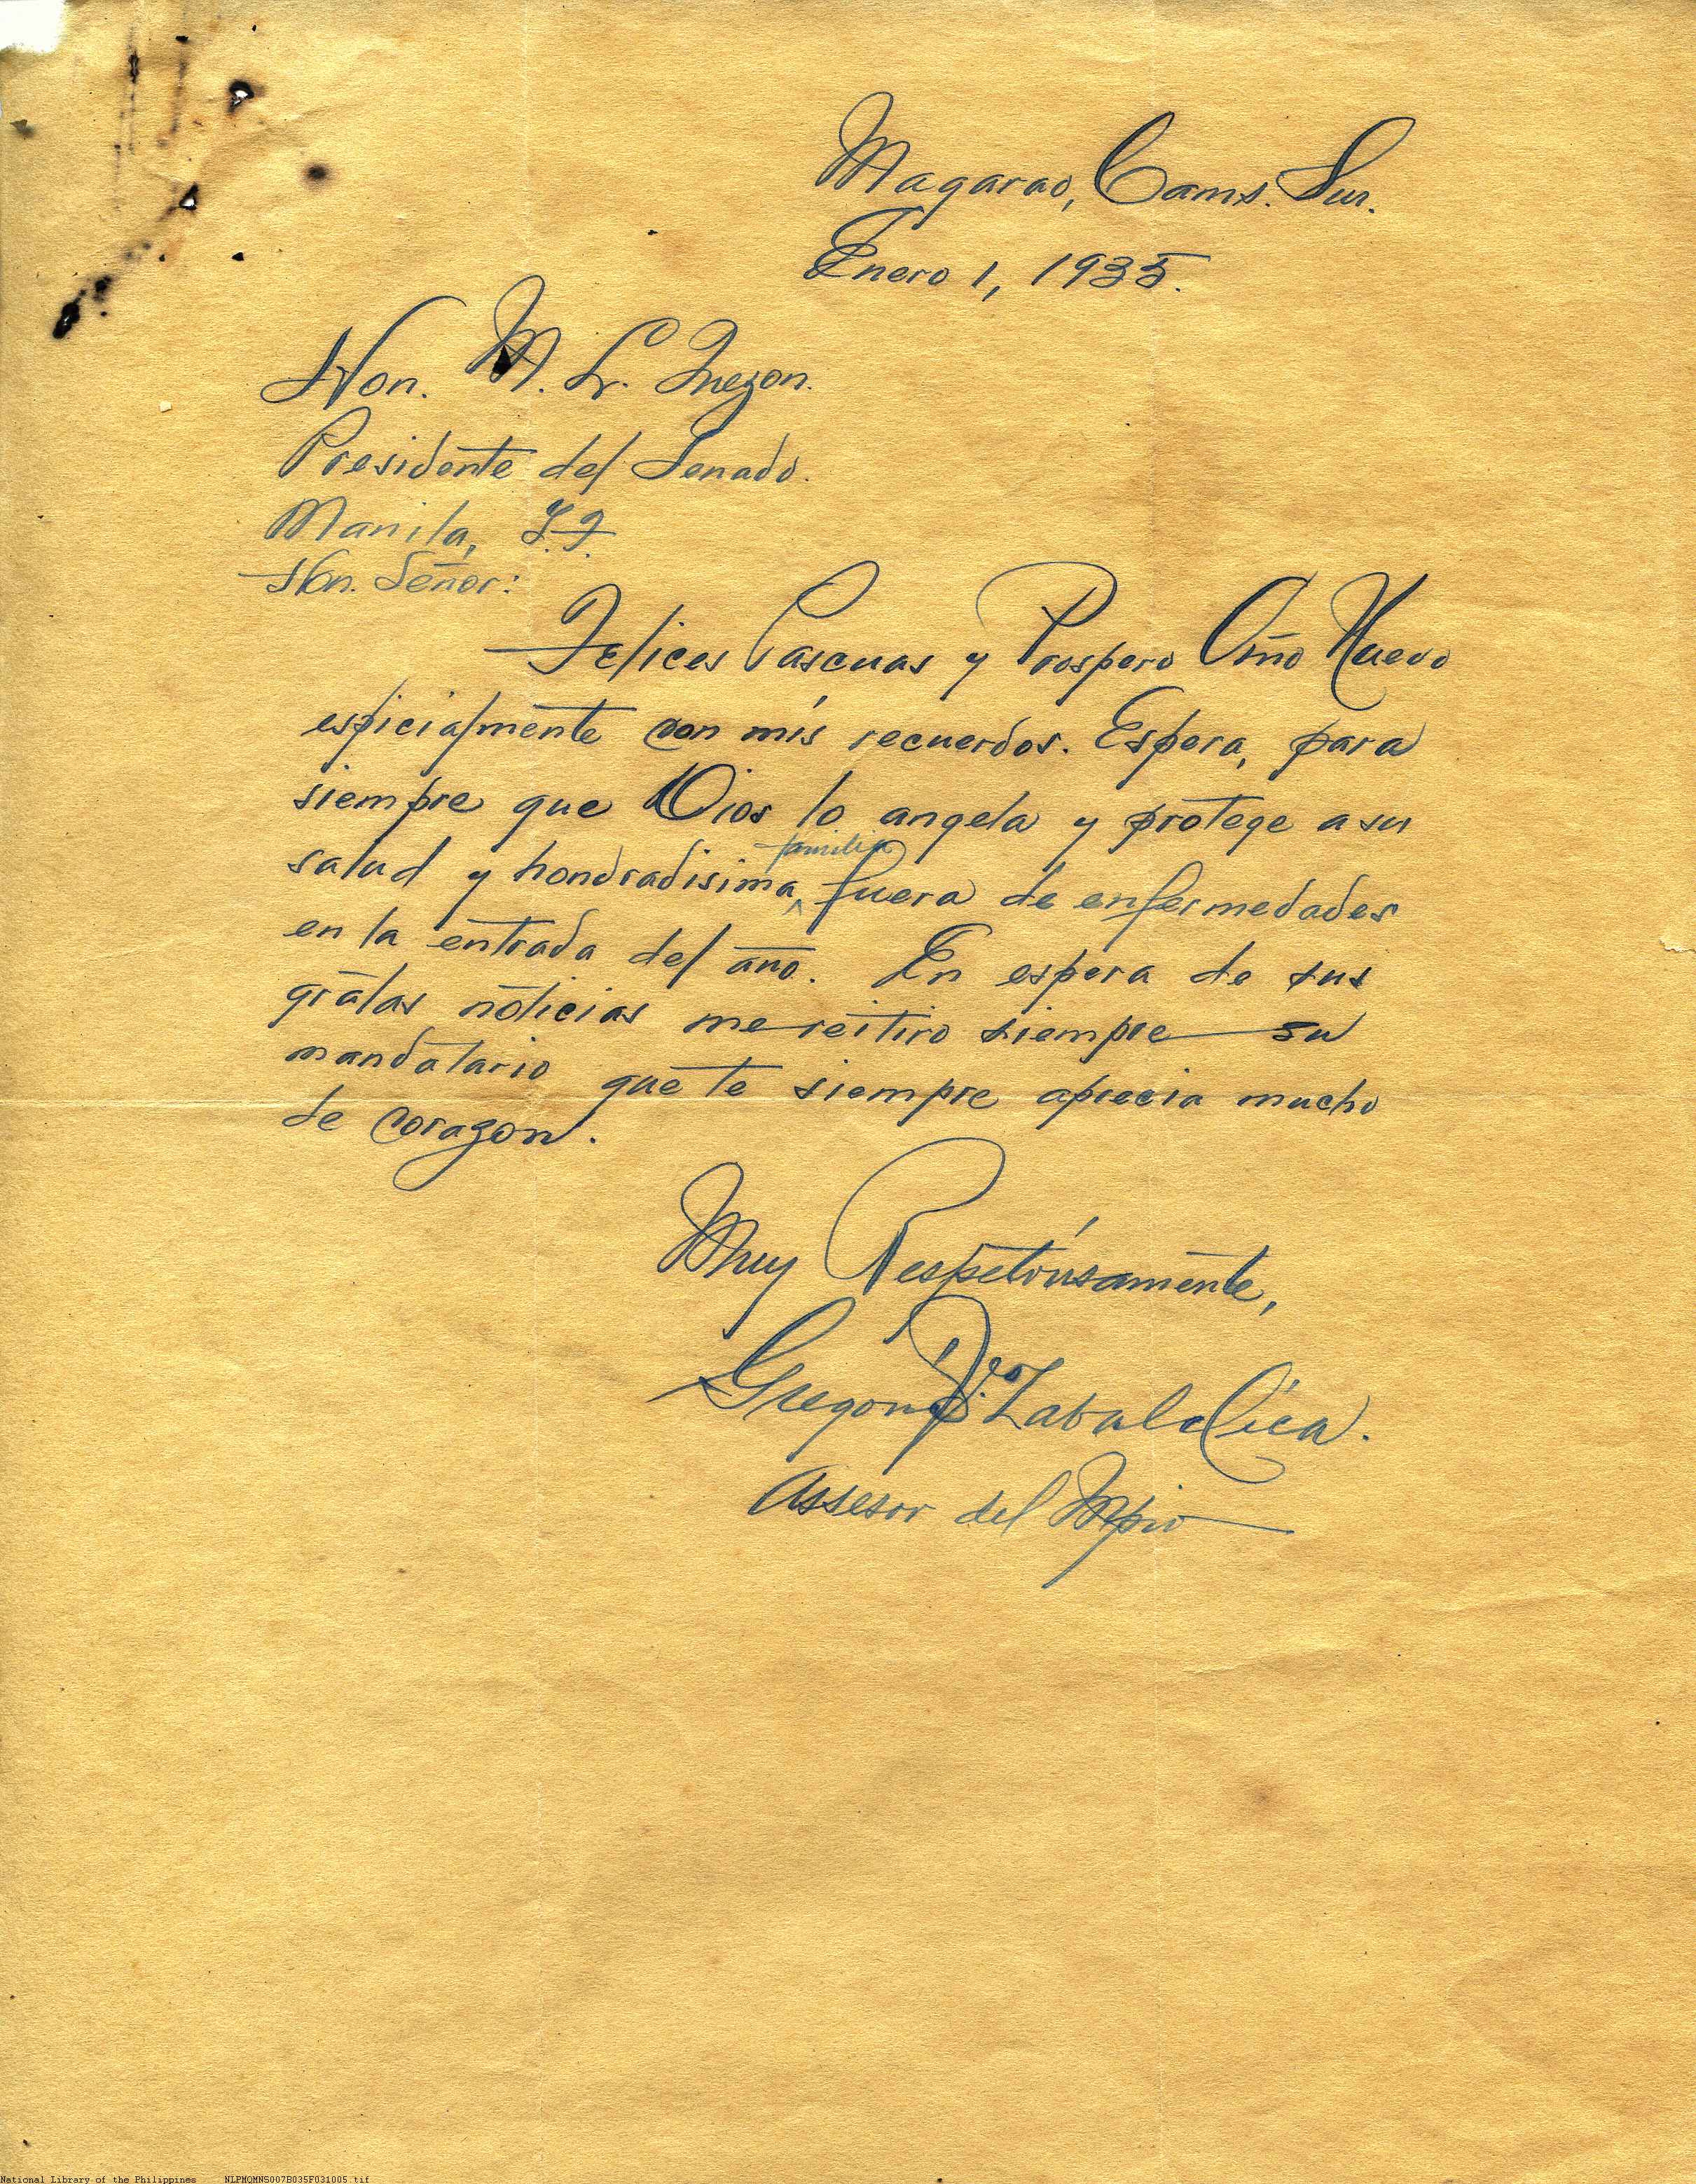 Magarao, Cams. Sur.
Enero 1, 1935.
Hon. M. L. Quezon.
Presidente del Senado.
Manila, I.F.
Hon. Señor:
Felices Pascuas y Prospero Año Nuevo
espicialmente con mis recuerdos. Espera, para
siempre que Dios lo angela y protege a su
salud y hondradisima familia fuera de enfermedades
en la entrada del año. En espera de sus
gratas noticias me reitiro siempre su
mandatario que te siempre aprecia mucho
de corazon.
Muy Respetuosamente,
Gregorio
Assesor del Mpio
National Library of the Philippines NLPMQMNS007B035F031005.tif